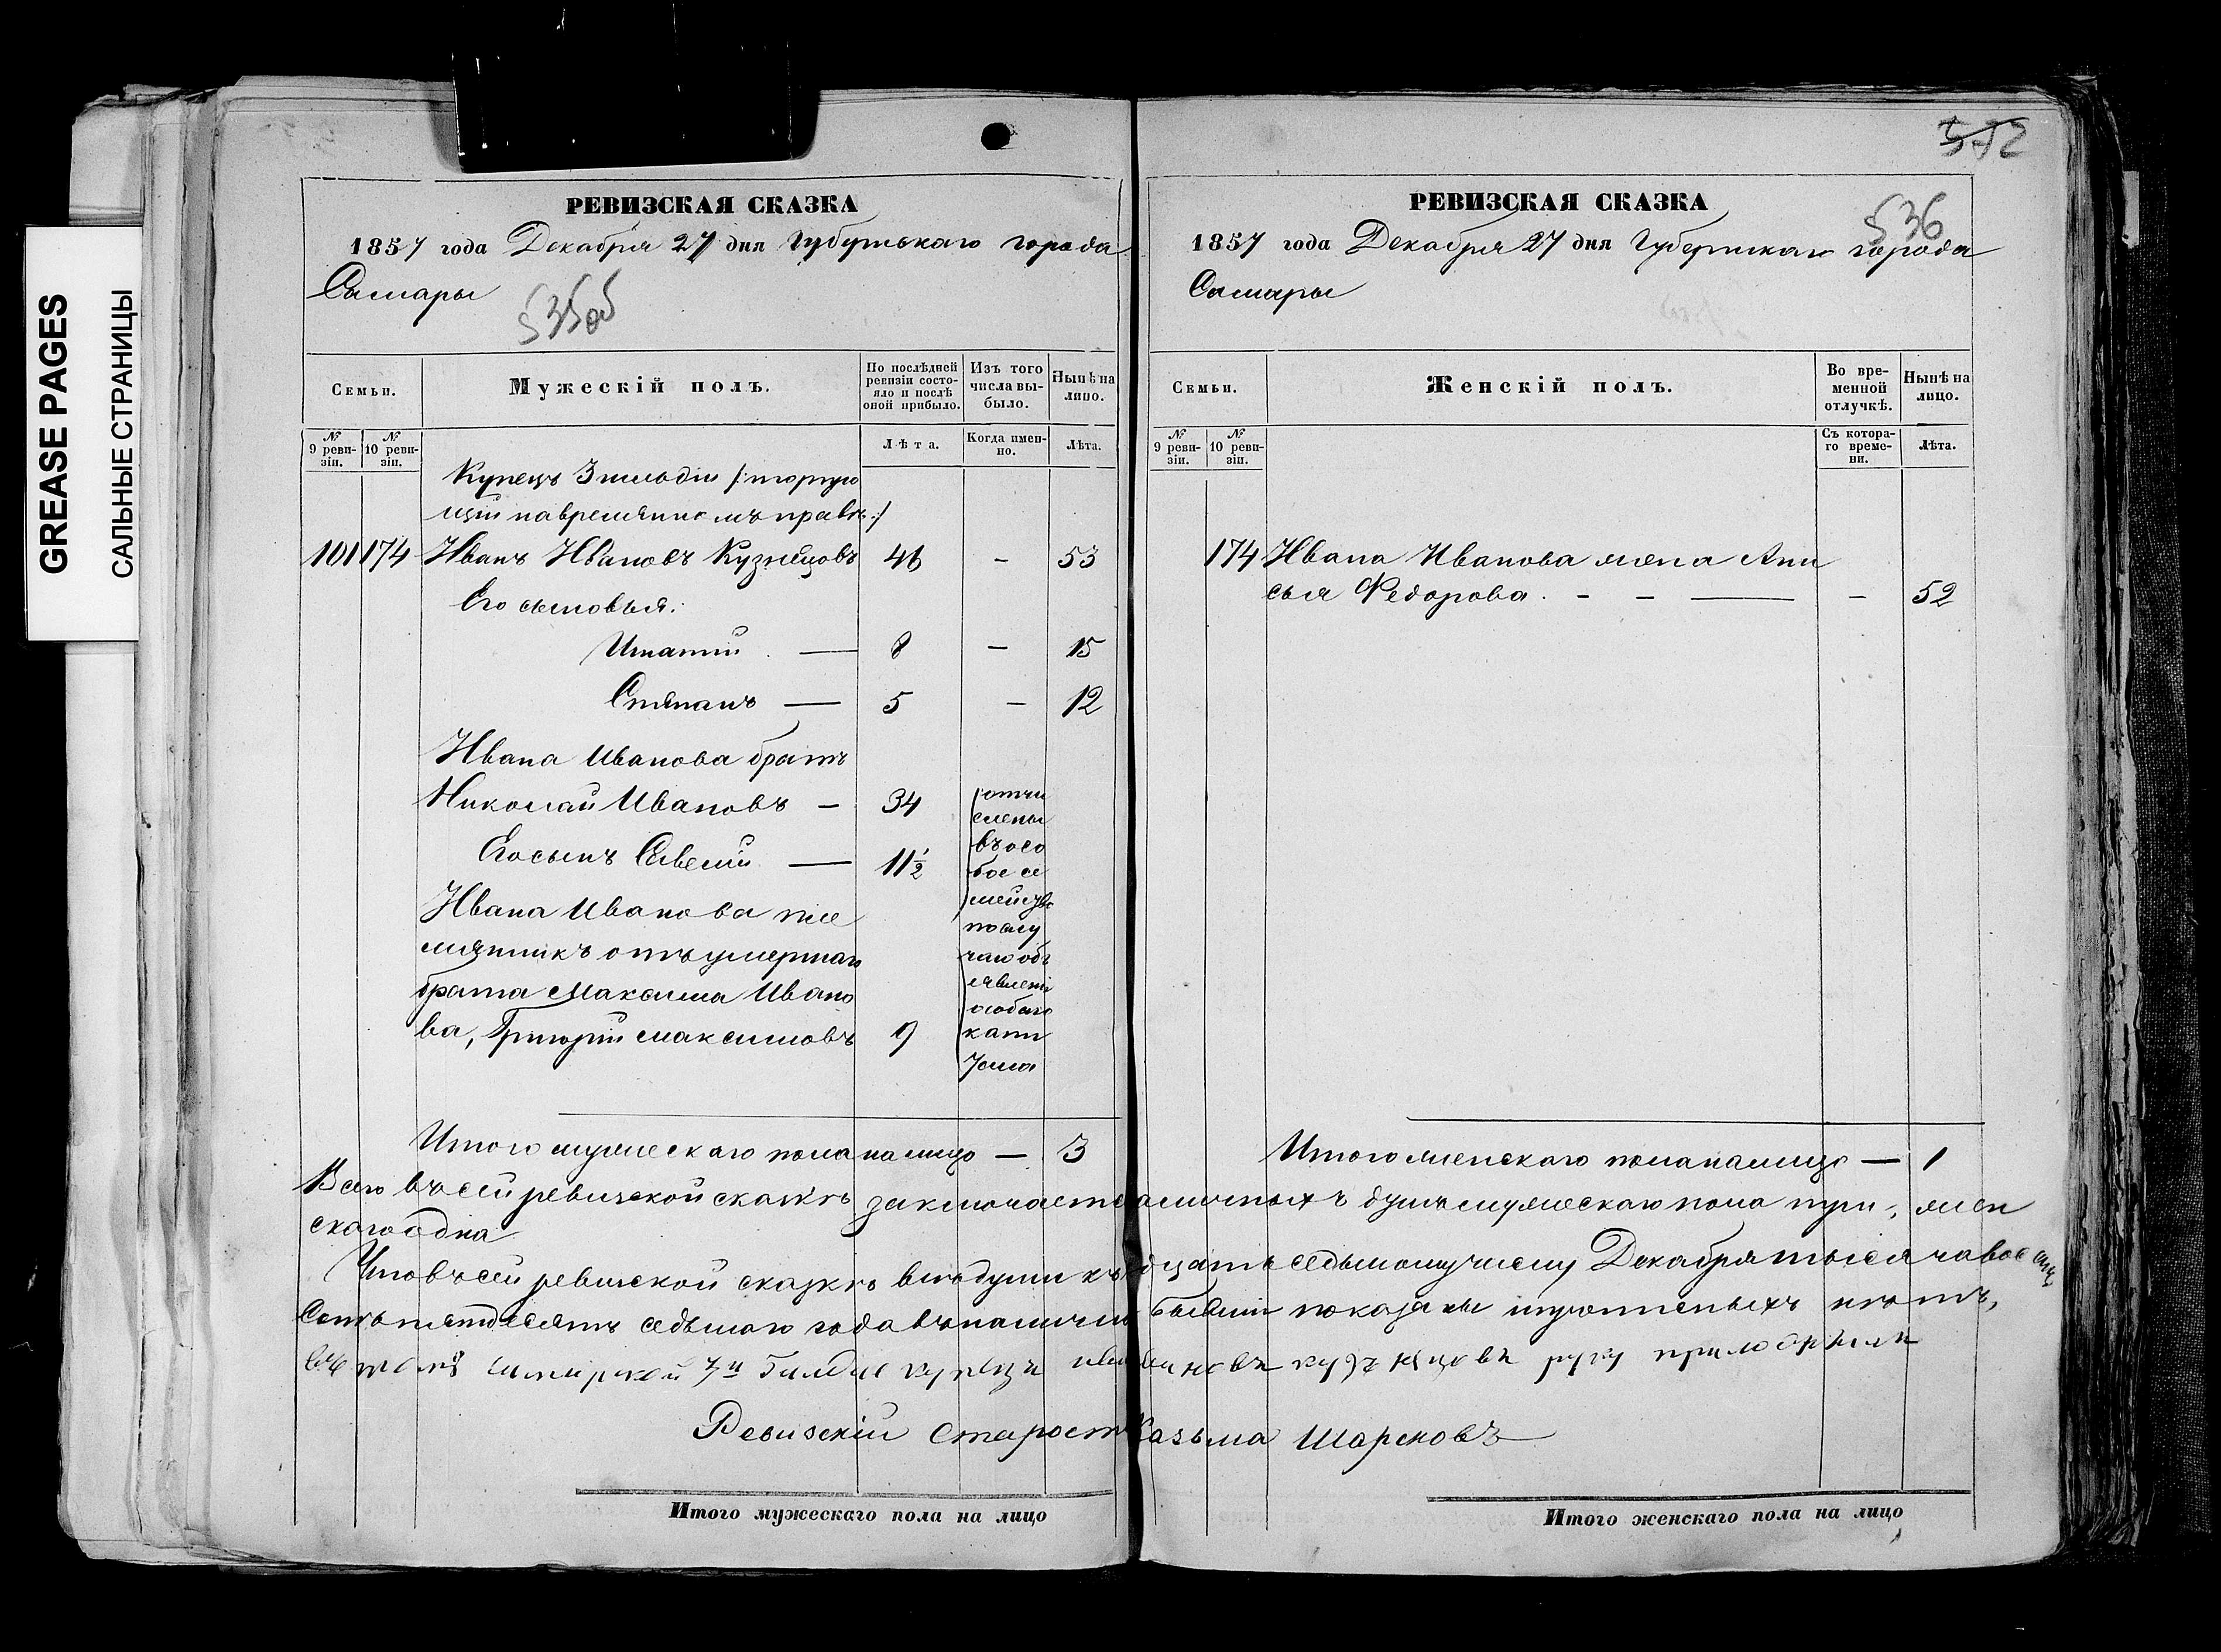 GREASE PAGES
САЛЬНЫЕ СТРАНИЦЫ
РЕВИЗСКАЯ СКАЗКА
1857 года Декабря 27 дня Губернскаго города
Самары
535об
Семьи.
Мужескiй полъ.
По послѣдней ревизiи состояло и послѣ оной прибыло.
Изъ того числа выбыло.
Нынѣ на лицо.
№ 9 ревизiи.
№ 10 ревизiи.
Лѣта.
Когда именно.
Лѣта.
Купецъ 3 гильдiи /:торгую
щiй на временномъ правѣ:/
101 174 Иванъ Ивановъ Кузнецовъ 46 - 53
Его сыновья:
Игнатiй — 8 - 15
Степанъ — 5 - 12
Ивана Иванова братъ
Николай Ивановъ — 34
Его сынъ Савелiй — 11½
Ивана Иванова пле
мянникъ отъ умершаго
брата Максима Ивано
ва, Григорiй Максимовъ 9
отчи
слены
въ осо
бое се
мейство
по слу
чаю объ
явленiя
особаго
капи
тала
Итого мужескаго пола на лицо — 3
552
РЕВИЗСКАЯ СКАЗКА
536
1857 года Декабря 27 дня Губернскаго города
Самары
Семьи.
Женскiй полъ.
Во временной отлучкѣ.
Нынѣ на лицо.
№ 9 ревизiи.
№ 10 ревизiи.
Съ котораго времени.
Лѣта.
174 Ивана Иванова жена Ани
сья Федорова. - - — - 52
Итого женскаго пола на лицо — 1
Всего въ сей ревизской сказкѣ заключается наличныхъ душъ мужескаго пола три, жен
скаго одна
Что въ сей ревизской сказкѣ всѣ души къ двадцать седьмому числу Декабря тысяча восемь
сотъ пятдесятъ седьмаго года въ наличiи бывшiи показаны и утаенныхъ нѣтъ,
Въ томъ самарской 3й Гилдiи купецъ иванъ ивановъ кузнецовъ руку приложилъ
Ревизскiй Староста Казьма Шарсковъ
Итого мужескаго пола на лицо
Итого женскаго пола на лицо